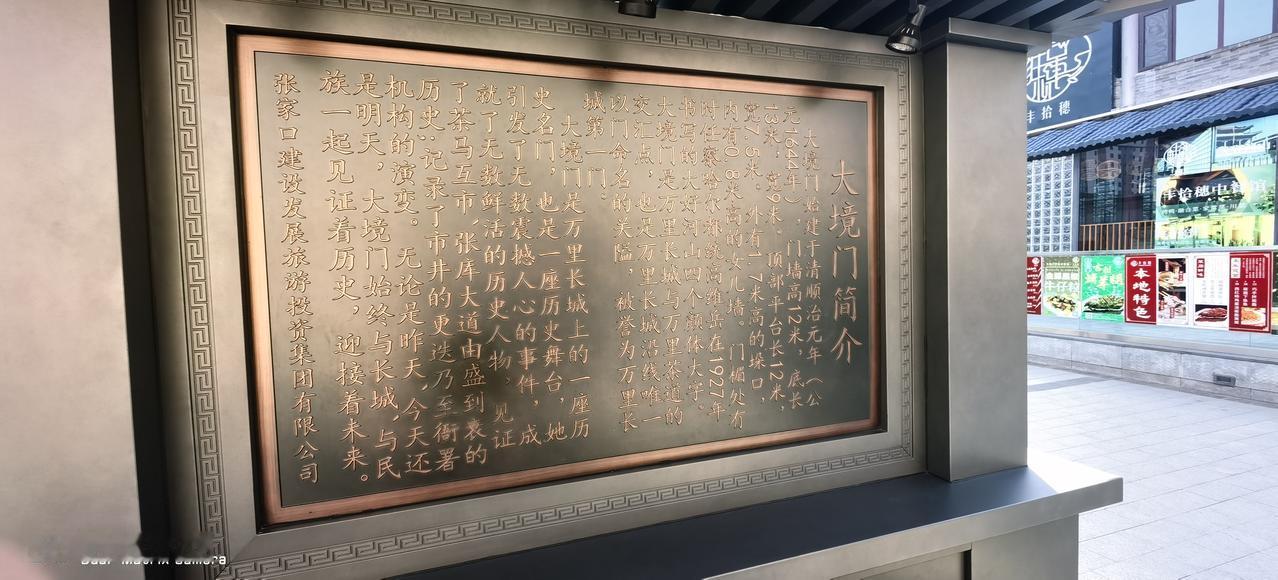 大境门简介
大境门始建于清顺治元年（公
元1644年），门墙高12米，底长
13米，宽9米，顶部平台长12米，
宽7.5米，外有1.7米高的垛口，
内有0.8米高的女儿墙。门楣处有
时任察哈尔都统高维岳在1927年
书写的大好河山四个颜体大字。
大境门是万里长城与万里茶道的
交汇点，也是万里长城沿线唯一
以门命名的关隘，被誉为万里长
城第一门。
大境门是万里长城上的一座历
史名门，也是一座历史舞台，她
引发了无数震撼人心的事件，成
就了无数鲜活的历史人物，见证
了茶马互市、张库大道由盛到衰的
历史；记录了市井的更迭乃至衙署
机构的演变。无论是昨天，今天还
是明天，大境门始终与长城，与民
族一起见证着历史，迎接着未来。
张家口建设发展旅游投资集团有限公司
丰拾穗
丰拾穗中餐馆
本地特色